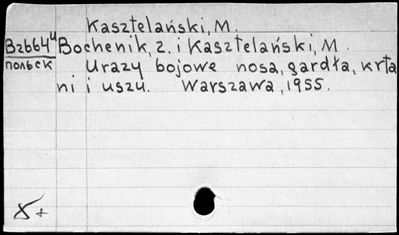 Kasztelański, M.
Bzb64u Bochenik, z. i Kasztelański, M.
польск Urazy bojowe nosa, gardła, krta
ni i uszu. Warszawa, 1955.